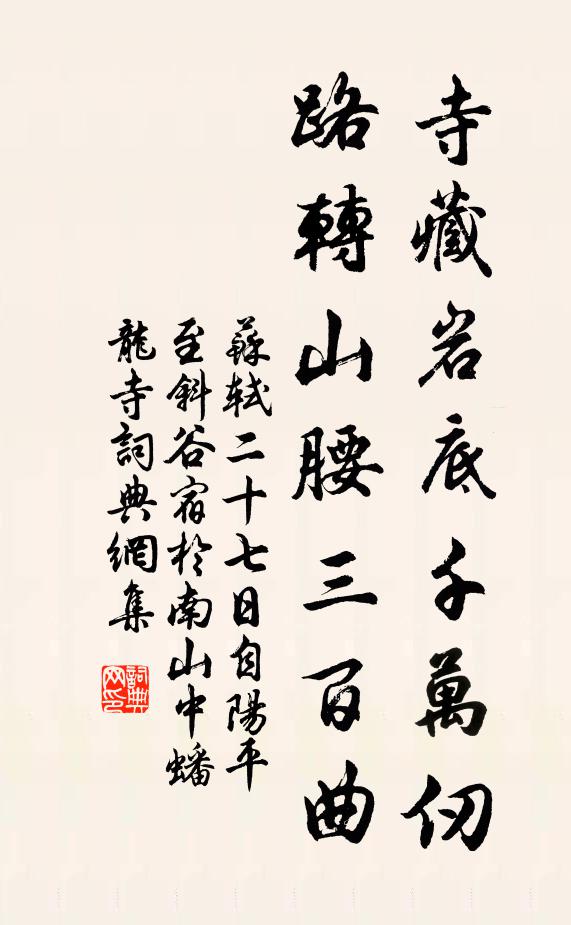 寺藏岩底千萬仞
路轉山腰三百曲
蘇軾二十七日自陽平
至斜谷宿於南山中蟠
龍寺詞典網集
詞典网印